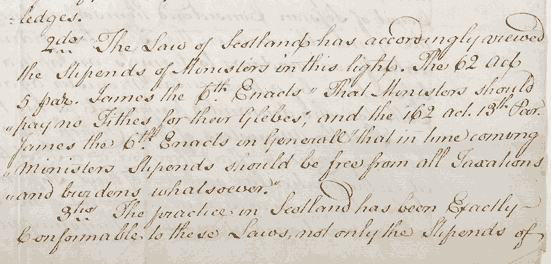 ledges.
2do. The Law of Scotland has accordingly viewed
the Stipends of Ministers in this light. The 62 Act
5 par. James the 6th Enacts "That Ministers should
"pay no Tithes for their Glebes", and the 162 act. 13th Par.
James the 6th Enacts in Generall "that in time comong
"Ministers Stipends should be free from all Taxations
"and burdens whatsoever."
3tio. The practice in Scotland has been Exactly
Conformable to these Laws, not only the Stipends of